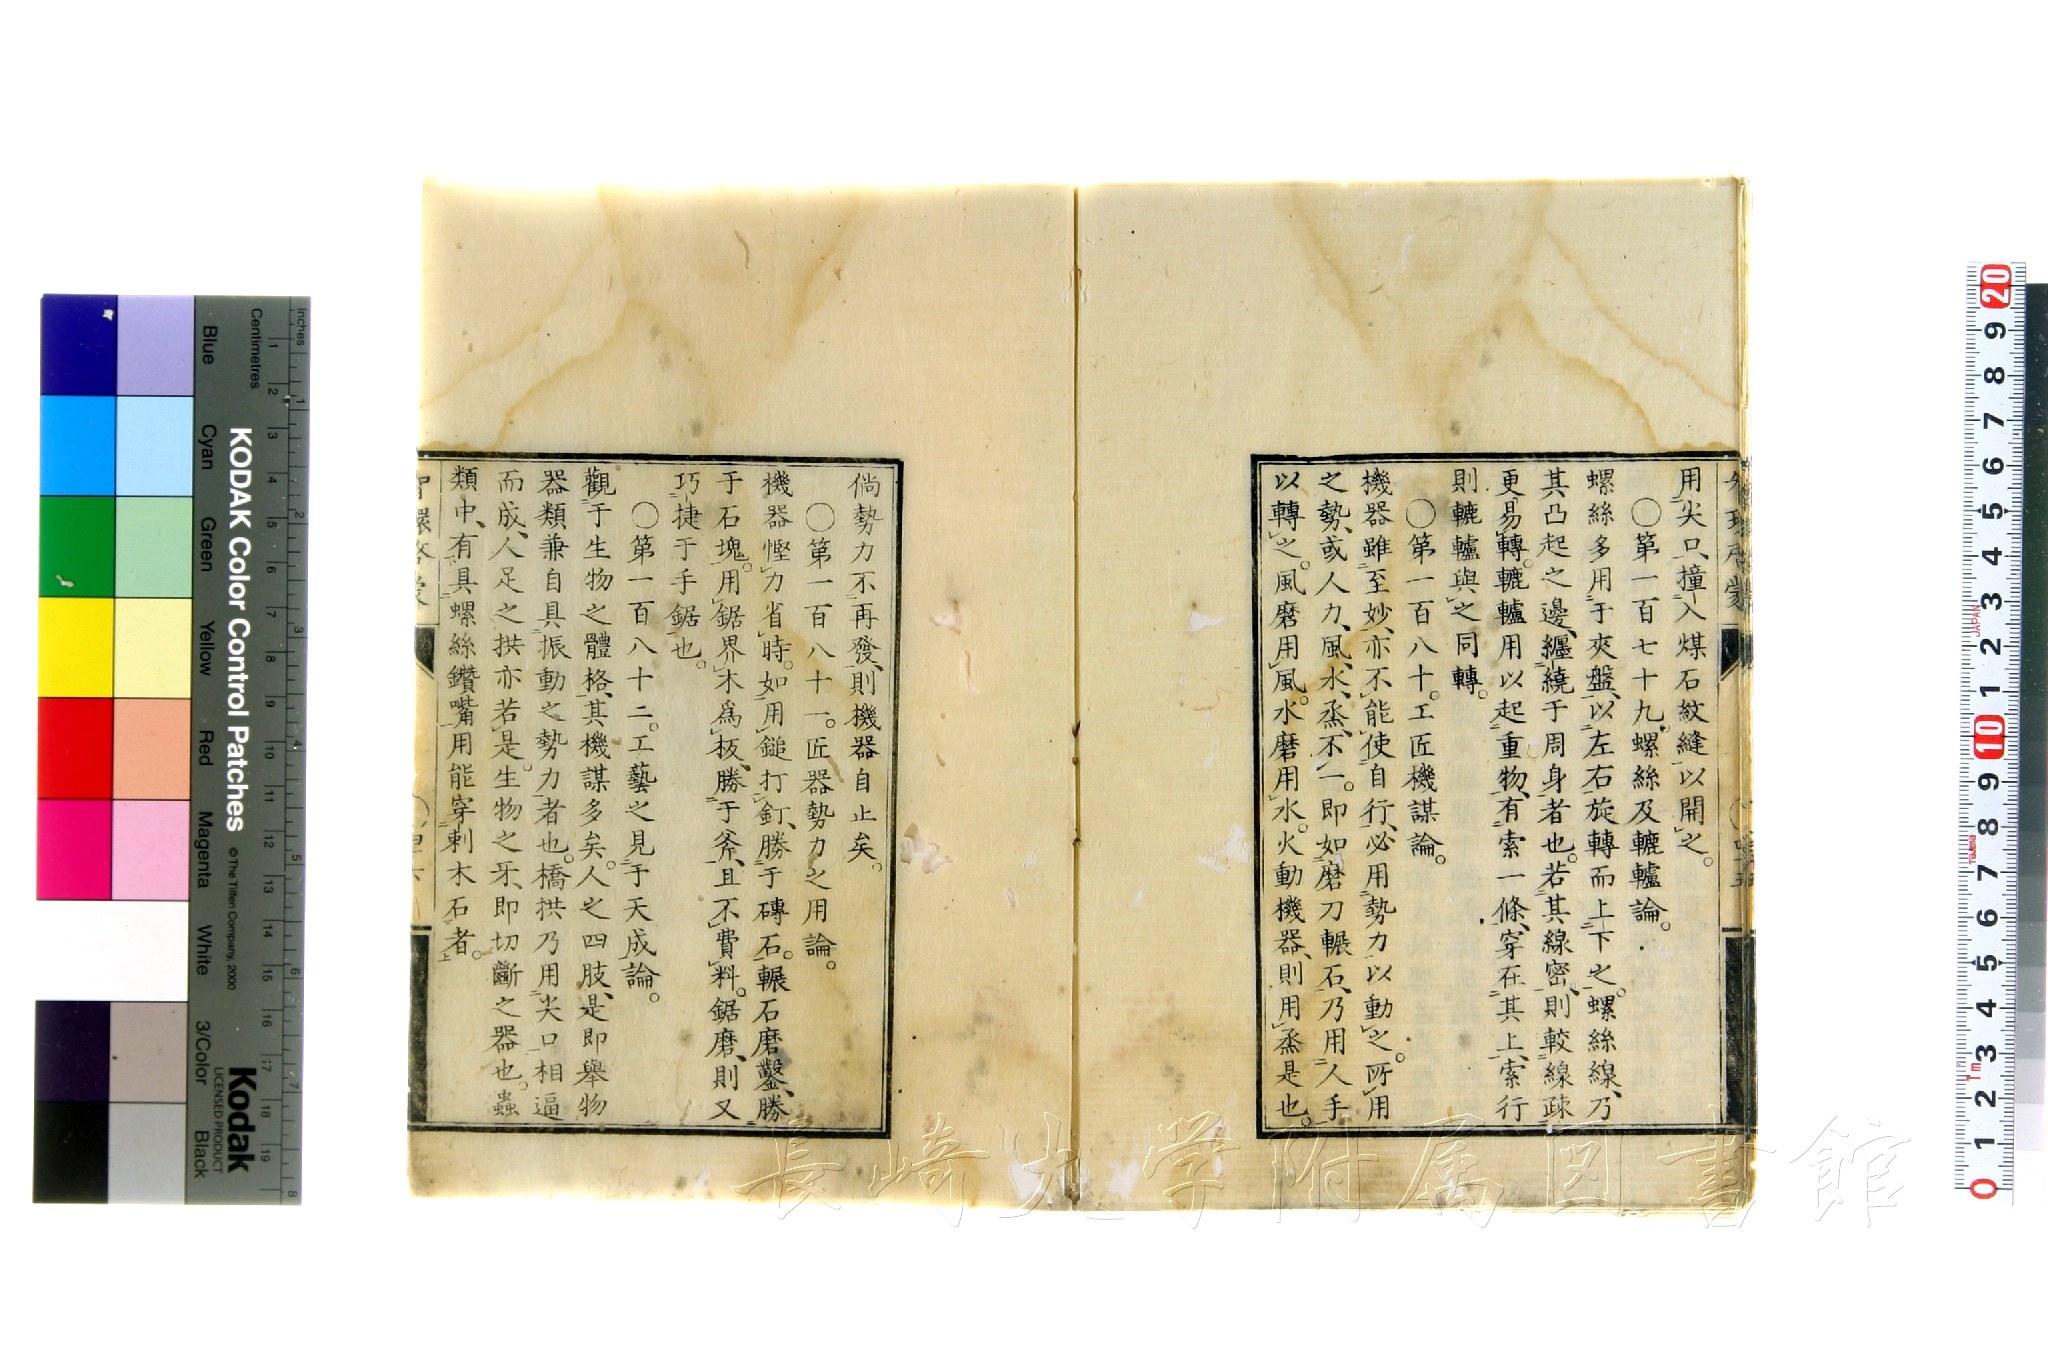 用尖口撞入煤石紋縫以開之。
〇第一百七十九。螺絲及轆轤論。
螺絲多用于夾盤、以左右旋轉而上下之。螺絲線、乃
其凸起之邊、纏繞于周身者也。若其線密、則較線疎
更易轉。轆轤用以起重物、有索一條、穿在其上、索行
則轆轤與之同轉。
〇第一百八十。工匠機謀論。
機器雖至妙、亦不能使自行、必用勢力以動之。所用
之勢、或人力、風、水、烝、不一。即如磨刀輾石、乃用人手
以轉之。風磨用風。水磨用水。火動機器、則用烝是也。
倘勢力不再發、則機器自止矣。
〇第一百八十一。匠器勢力之用論。
機器慳力省時。如用鎚打釘、勝于磚石。輾石磨鑿、勝
于石塊。用鋸界木為板、勝于斧、且不費料。鋸磨、則又
巧捷于手鋸也。
〇第一百八十二。工藝之見于天成論。
觀于生物之體格、其機謀多矣。人之四肢、是即舉物
器類兼自具振動之勢力者也。橋拱乃用尖口相逼
而成、人足之拱亦若是。生物之牙、即切斷之器也。蟲
類中、有具螺絲鑽嘴、用能穿刺木石者。
KODAK Color Control Patches
© The Tiffen Company, 2000
Kodak
LICENSED PRODUCT
Inches
Centimetres
Blue
Cyan
Green
Yellow
Red
Magenta
White
3/Color
Black
長崎大学附属図書館
JAPAN